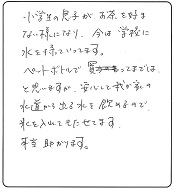 小学生の息子が、お茶を好ま
ない様になり、今は学校に
水を持っていってます。
ペットボトルで買ってまでは、
と思いますが、安心して我が家の
水道から出る水を飲めるので
水を入れてもたせてます。
本当助かります。